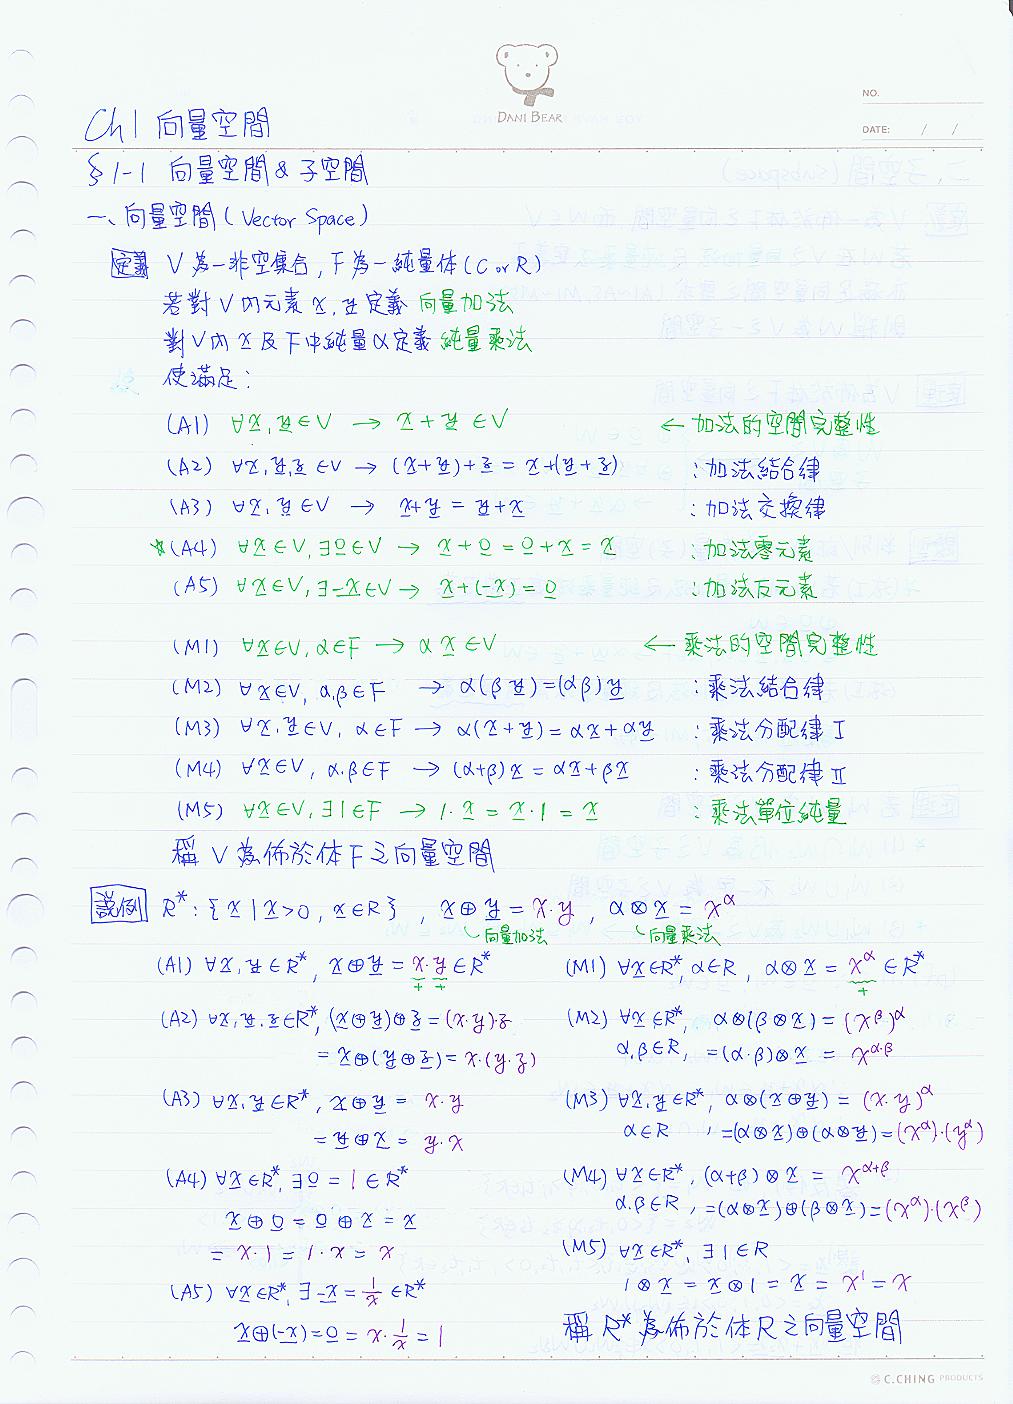 DANI BEAR
NO.
DATE: / /
Ch 1 向量空間
§ 1-1 向量空間 & 子空間
一、向量空間 (Vector Space)
定義 V為一非空集合, F為一純量体(C or R)
若對V內元素 x, y 定義 向量加法
對V內 x 及 F中純量α定義 純量乘法
使滿足:
(A1) ∀x, y ∈V → x + y ∈V ← 加法的空間完整性
(A2) ∀x, y, z ∈V → (x+y)+z = x+(y+z) : 加法結合律
(A3) ∀x, y ∈V → x+y = y+x : 加法交換律
*(A4) ∀x∈V, ∃0∈V → x+0=0+x=x : 加法零元素
(A5) ∀x∈V, ∃-x∈V → x+(-x)=0 : 加法反元素
(M1) ∀x∈V, α∈F → αx∈V ← 乘法的空間完整性
(M2) ∀x∈V, α,β∈F → α(βy)=(αβ)y : 乘法結合律
(M3) ∀x, y∈V, α∈F → α(x+y)=αx+αy : 乘法分配律 I
(M4) ∀x∈V, α.β∈F → (α+β)x = αx+βx : 乘法分配律 II
(M5) ∀x∈V, ∃1∈F → 1·x = x·1 = x : 乘法單位純量
稱 V為佈於体F之向量空間
說例 R*: {x | x>0, x∈R}, x⊕y = x·y, α⊗x = x^α
向量加法 向量乘法
(A1) ∀x, y∈R*, x⊕y = x·y ∈R*
+ +
(A2) ∀x, y, z∈R*, (x⊕y)⊕z = (x·y)·z
= x⊕(y⊕z) = x·(y·z)
(A3) ∀x, y∈R*, x⊕y = x·y
= y⊕x = y·x
(A4) ∀x∈R*, ∃0 = 1∈R*
x⊕0 = 0⊕x = x
= x·1 = 1·x = x
(A5) ∀x∈R*, ∃-x = 1/x ∈R*
x⊕(-x) = 0 = x·1/x = 1
(M1) ∀x∈R*, α∈R, α⊗x = x^α ∈R*
+
(M2) ∀x∈R*, α⊗(β⊗x) = (x^β)^α
α.β∈R, =(α·β)⊗x = x^α·β
(M3) ∀x, y∈R*, α⊗(x⊕y) = (x·y)^α
α∈R, =(α⊗x)⊕(α⊗y)=(x^α)·(y^α)
(M4) ∀x∈R*, (α+β)⊗x = x^α+β
α.β∈R, =(α⊗x)⊕(β⊗x)=(x^α)·(x^β)
(M5) ∀x∈R*, ∃1∈R
1⊗x = x⊗1 = x = x^1 = x
稱 R*為佈於体R之向量空間
C.CHING PRODUCTS